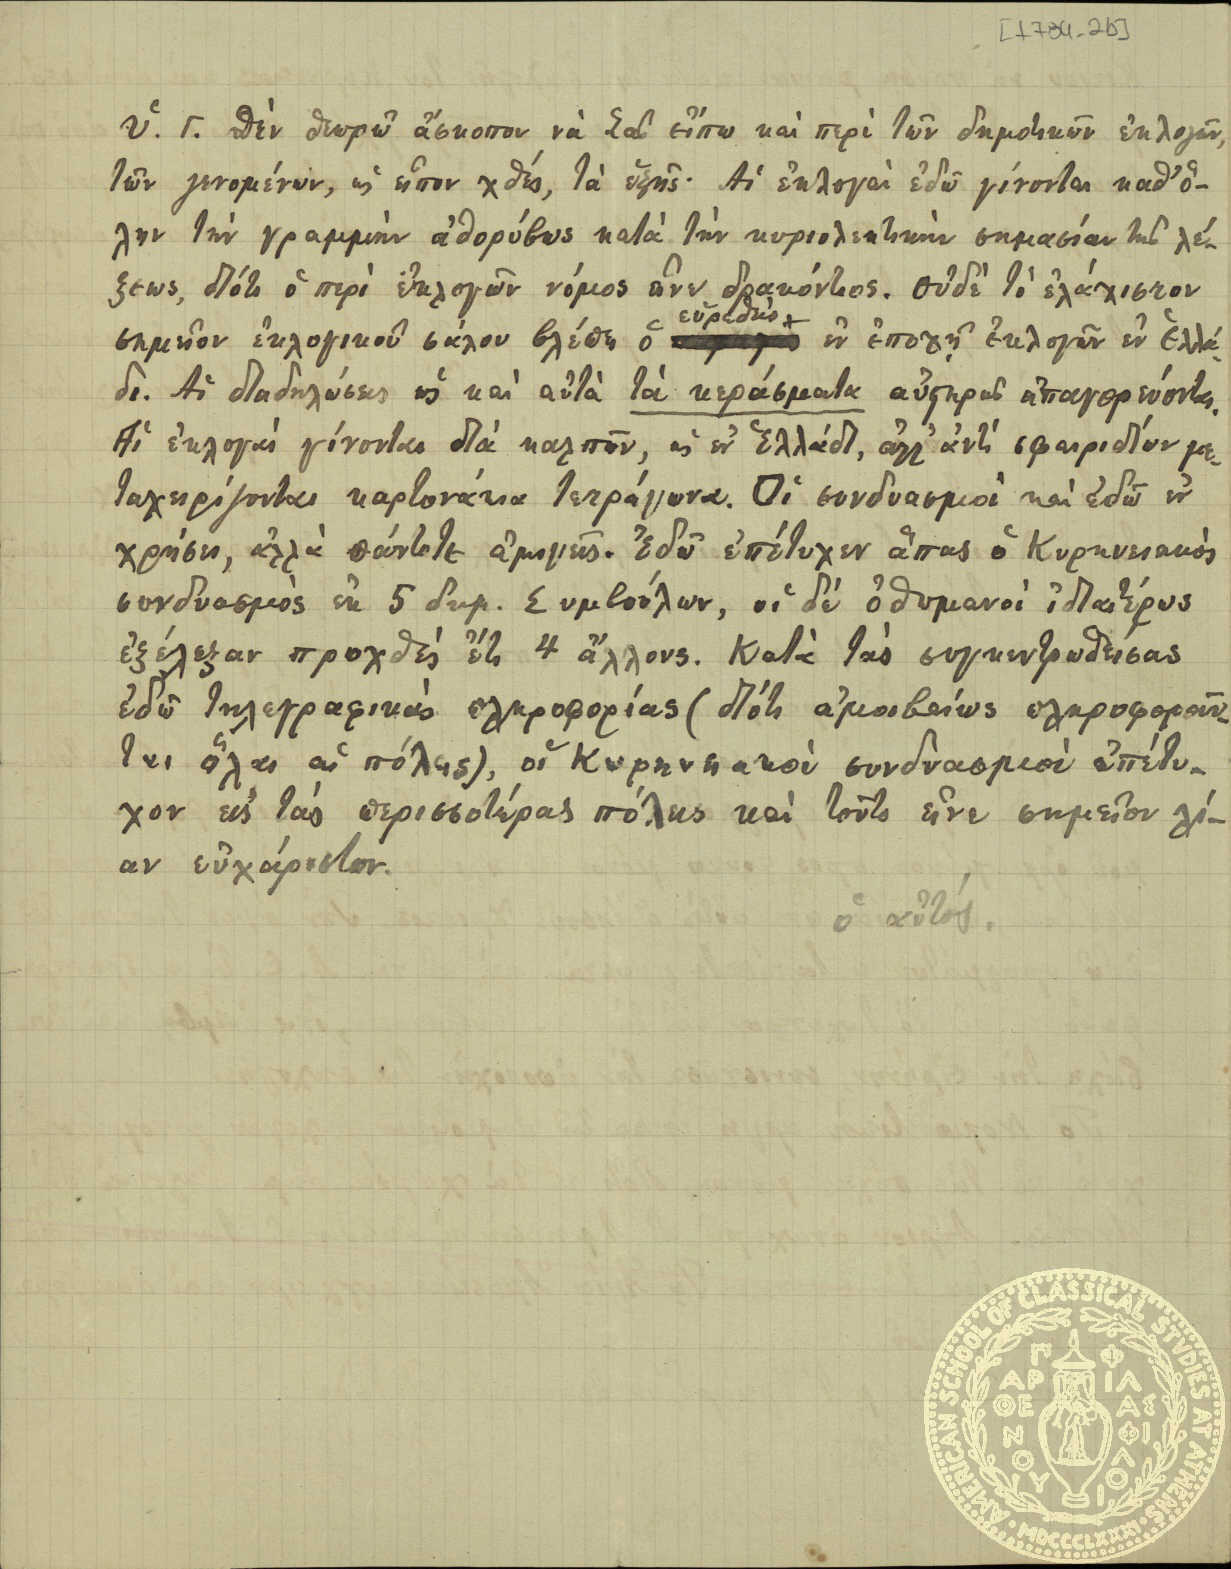 [1734-2b]
Ὑ. Γ. Δὲν θεωρῶ ἄσκοπον νὰ Σᾶς εἴπω καὶ περὶ τῶν δημοτικῶν ἐκλογῶν,
τῶν γενομένων, ὡς εἶπον χθές, τὰ ἑξῆς· Αἱ ἐκλογαὶ ἐδῶ γίνονται καθ' ὅ-
λην τὴν γραμμὴν ἀθορύβως κατὰ τὴν κυριολεκτικὴν σημασίαν τῆς λέ-
ξεως, διότι ὁ περὶ ἐκλογῶν νόμος εἶνε δρακόντιος. Οὐδὲ τὸ ἐλάχιστον
σημεῖον ἐκλογικοῦ σάλου βλέπει ὁ εὑρεθεὶς ἐν ἐποχῇ ἐκλογῶν ἐν Ἑλλά-
δι. Αἱ διαδηλώσεις ὡς καὶ αὐτὰ τὰ κεράσματα αὐστηρῶς ἀπαγορεύονται.
Αἱ ἐκλογαὶ γίνονται διὰ καλπῶν, ὡς ἐν Ἑλλάδι, ἀλλ' ἀντὶ σφαιριδίων με-
ταχειρίζονται καρτονάκια τετράγωνα. Οἱ συνδυασμοὶ καὶ ἐδῶ ἐν
χρήσει, ἀλλὰ πάντοτε ἀμιγεῖς. Ἐδῶ ἐπέτυχεν ἅπας ὁ Κυρηνειακὸς
συνδυασμὸς ἐκ 5 δημ. Συμβούλων, οἱ δὲ ὀθωμανοὶ ἰδιαιτέρως
ἐξέλεξαν προχθὲς ἔτι 4 ἄλλους. Κατὰ τὰς συγκεντρωθείσας
ἐδῶ τηλεγραφικὰς πληροφορίας (διότι ἀμοιβαίως πληροφοροῦν-
ται ὅλαι αἱ πόλεις), οἱ Κυρηνειακοὶ συνδυασμοὶ ἐπέτυ-
χον εἰς τὰς περισσοτέρας πόλεις καὶ τοῦτο εἶνε σημεῖον λί-
αν εὐχάριστον.
ὁ αὐτός.
AMERICAN SCHOOL OF CLASSICAL STVDIES AT ATHENS · MDCCCLXXXI ·
ΠΑΡΘΕΝΟΥ ΦΙΛΑΣ ΦΙΛΟΙ